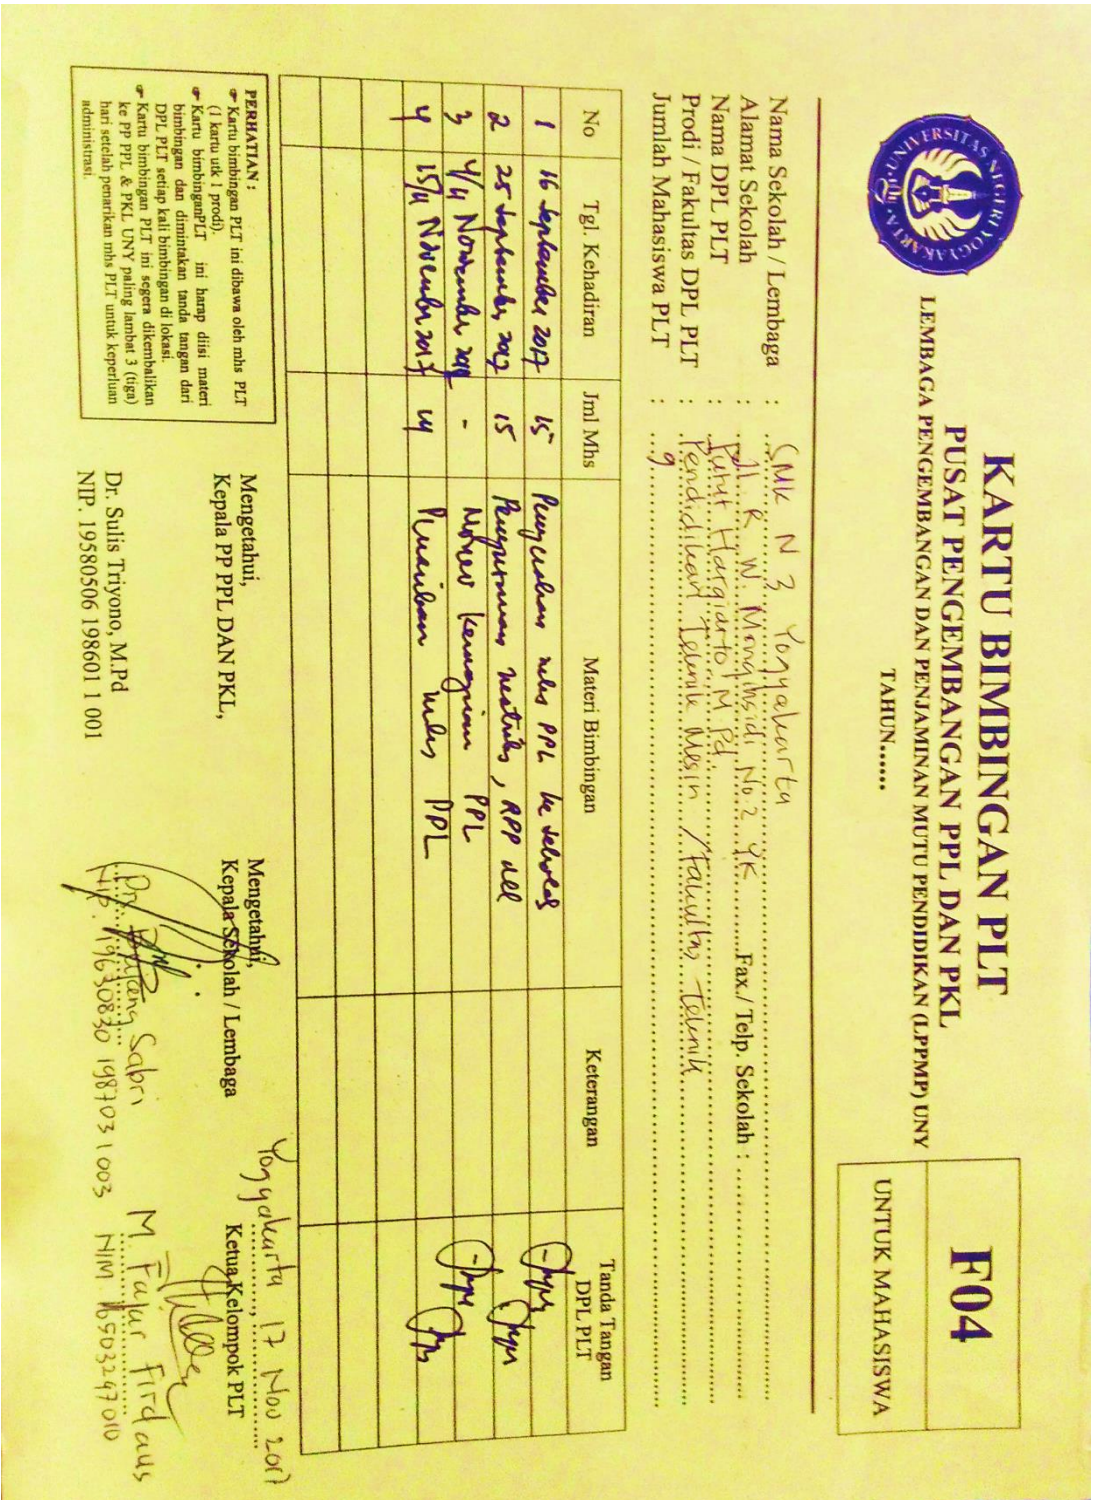 UNIVERSITAS NEGERI YOGYAKARTA
KARTU BIMBINGAN PLT
PUSAT PENGEMBANGAN PPL DAN PKL
LEMBAGA PENGEMBANGAN DAN PENJAMINAN MUTU PENDIDIKAN (LPPMP) UNY
TAHUN......
F04
UNTUK MAHASISWA
Nama Sekolah / Lembaga : SMK N 3 Yogyakarta
Alamat Sekolah : Jl. R W. Monginsidi No.2 YK Fax./ Telp. Sekolah :
Nama DPL PLT : Putut Hargiarto M Pd.
Prodi / Fakultas DPL PLT : Pendidikan Teknik Mesin / Fakultas Teknik
Jumlah Mahasiswa PLT : 9
No Tgl. Kehadiran Jml Mhs Materi Bimbingan Keterangan Tanda Tangan DPL PLT
1 16 September 2017 15 mhs PPL ke sekolah
2 25 September 2017 15 , RPP dll
3 4/11 November - Monev PPL
4 15/11 November 2017 14 Penarikan mhs PPL
PERHATIAN :
☞ Kartu bimbingan PLT ini dibawa oleh mhs PLT
(1 kartu utk 1 prodi).
☞ Kartu bimbinganPLT ini harap diisi materi
bimbingan dan dimintakan tanda tangan dari
DPL PLT setiap kali bimbingan di lokasi.
☞ Kartu bimbingan PLT ini segera dikembalikan
ke PP PPL & PKL UNY paling lambat 3 (tiga)
hari setelah penarikan mhs PLT untuk keperluan
administrasi.
Mengetahui,
Kepala PP PPL DAN PKL,
Dr. Sulis Triyono, M.Pd
NIP. 19580506 198601 1 001
Mengetahui,
Kepala Sekolah / Lembaga
Drs. Sabri
NIP. 19630830 198703 1 003
Yogyakarta, 17 Nov 2017
Ketua Kelompok PLT
M. Fajar Firdaus
NIM 16503247010